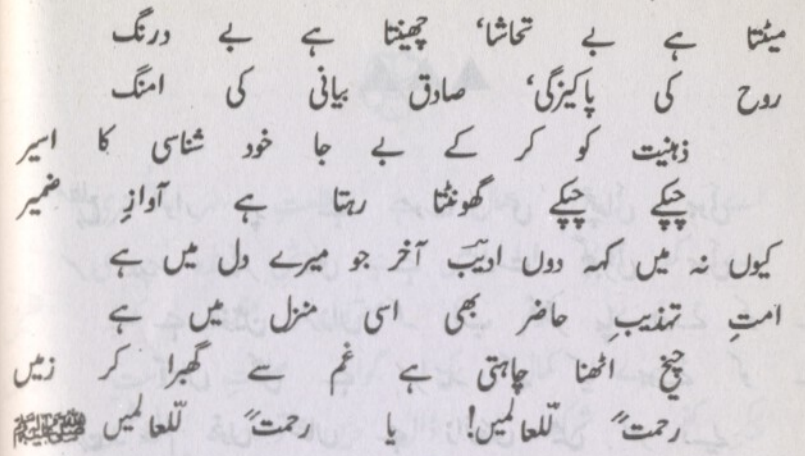 میٹتا ہے بے تحاشا، چھینتا ہے بے درنگ
روح کی پاکیزگی، صادق بیانی کی امنگ
ذہنیت کو کر کے بے جا خود شناسی کا اسیر
چپکے چپکے گھونٹتا رہتا ہے آوازِ ضمیر
کیوں نہ میں کہہ دوں ادیبؔ آخر جو میرے دل میں ہے
امتِ تہذیبِ حاضر بھی اسی منزل میں ہے
چیخ اٹھنا چاہتی ہے غم سے گھبرا کر زمیں
رحمتہً للعالمیں! یا رحمتہً للعالمیں ﷺ